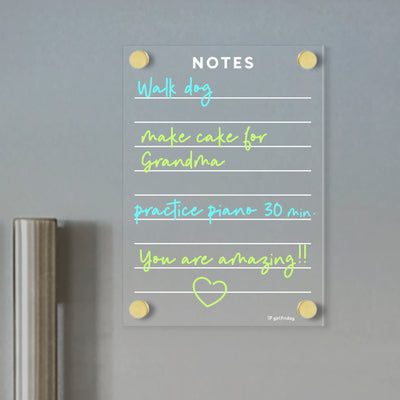 NOTES
Walk dog
make cake for
Grandma
practice piano 30 min.
You are amazing!!
girl friday